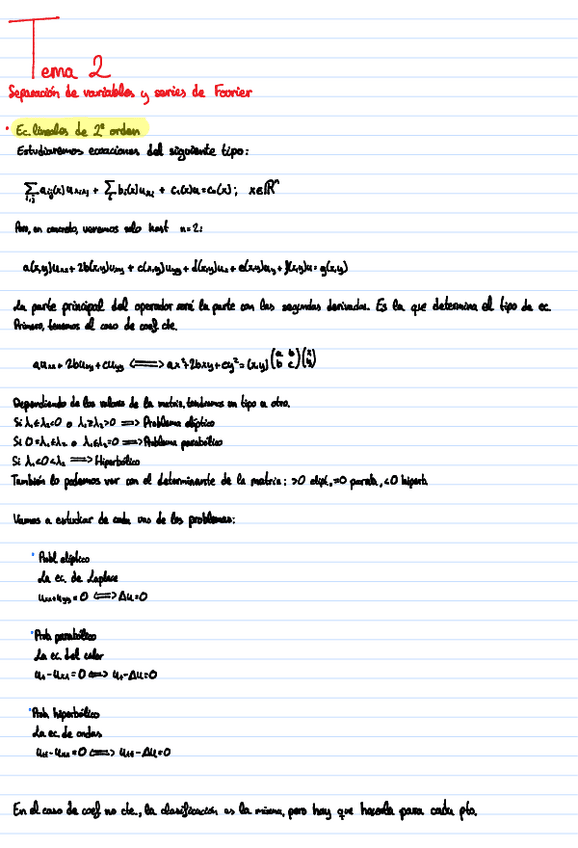 Tema 2
Separación de variables y series de Fourier
• Ec. lineales de 2º orden
Estudiaremos ecuaciones del siguiente tipo:
∑_{i,j} a_{ij}(x)u_{x_i x_j} + ∑_i b_i(x)u_{x_i} + c_1(x)u = c_0(x); x∈ℝⁿ
Pero, en concreto, veremos solo hast n=2:
a(x,y)u_{xx} + 2b(x,y)u_{xy} + c(x,y)u_{yy} + d(x,y)u_x + e(x,y)u_y + f(x,y)u = g(x,y)
La parte principal del operador será la parte con las segundas derivadas. Es la que determina el tipo de ec.
Primero, tenemos el caso de coef. cte.
au_{xx} + 2bu_{xy} + cu_{yy} <=> ax² + 2bxy + cy² = (x,y) (a b; b c) (x; y)
Dependiendo de los valores de la matriz, tendremos un tipo u otro.
Si λ₁≤λ₂<0 o λ₁≥λ₂>0 => Problema elíptico
Si 0=λ₁≤λ₂ o λ₁≤λ₂=0 => Problema parabólico
Si λ₁<0<λ₂ => Hiperbólico
También lo podemos ver con el determinante de la matriz: >0 elípt, =0 parab, <0 hiperb.
Vamos a estudiar de cada uno de los problemas:
• Probl elíptico
La ec. de Laplace
u_{xx}+u_{yy}=0 <=> Δu=0
• Prob. parabólico
La ec. del calor
u_t-u_{xx}=0 <=> u_t-Δu=0
• Prob. hiperbólico
La ec. de ondas
u_{tt}-u_{xx}=0 <=> u_{tt}-Δu=0
En el caso de coef no cte., la clasificación es la misma, pero hay que hacerla para cada pto.